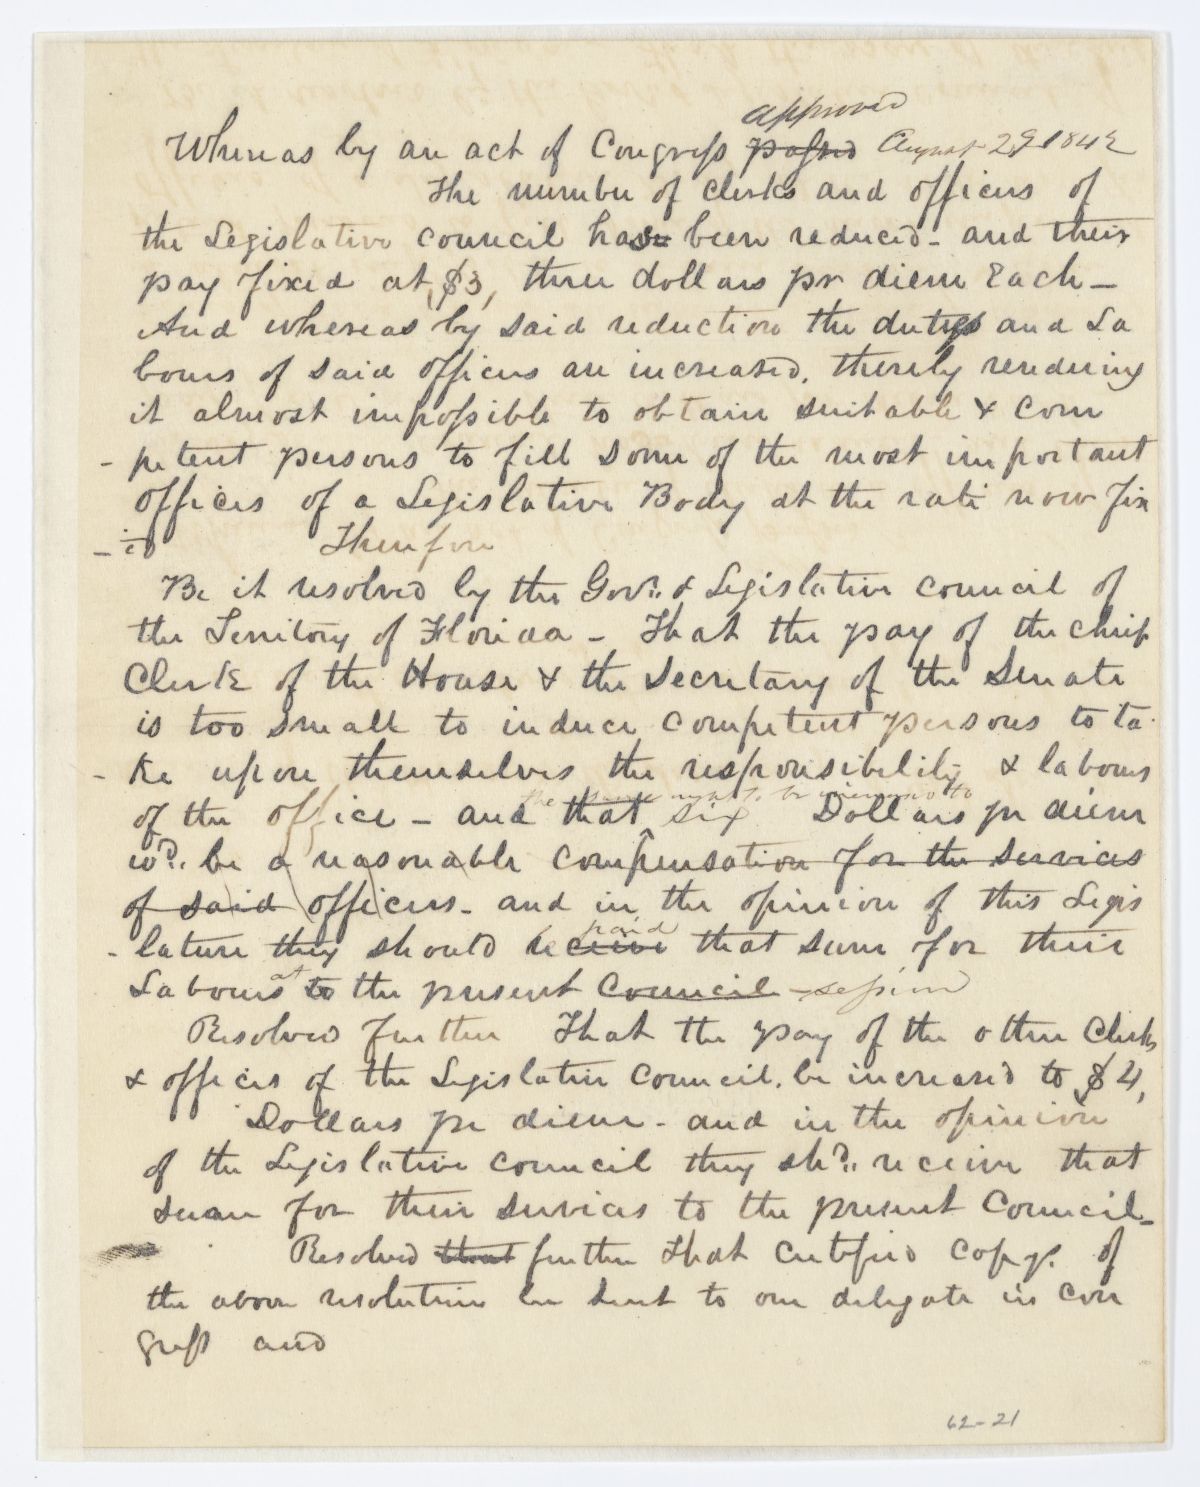 approved
Whereas by an act of Congress passed August 29 1842
The number of clerks and officers of
the Legislative council has been reduced - and their
pay fixed at $3, three dollars pr diem Each -
And whereas by said reduction the dutys and La
bours of said officers are increased, thereby rendering
it almost impossible to obtain suitable & com
- petent persons to fill some of the most important
offices of a Legislative Body at the rate now fix
- ed Therefore
Be it resolved by the Govr. & Legislative council of
the Territory of Florida - That the pay of the chief
Clerk of the House & the Secretary of the Senate
is too small to induce competent persons to ta-
- ke upon themselves the responsibility & labours
the same ought to be increased to
of the office - and that six Dollars pr diem
wd. be a reasonable compensation for the services
of said officers - and in the opinion of this Legis
paid
- lature they should receive that sum for their
at
Labours to the present Council - session
Resolved further That the pay of the other Clerks
& offices of the Legislative Council, be increased to $4,
Dollars pr diem - and in the opinion
of the Legislative council they shd. receive that
sum for their services to the present Council -
Resolved that further that certified copy. of
the above resolution be sent to our delegate in Con
gress and
62-21